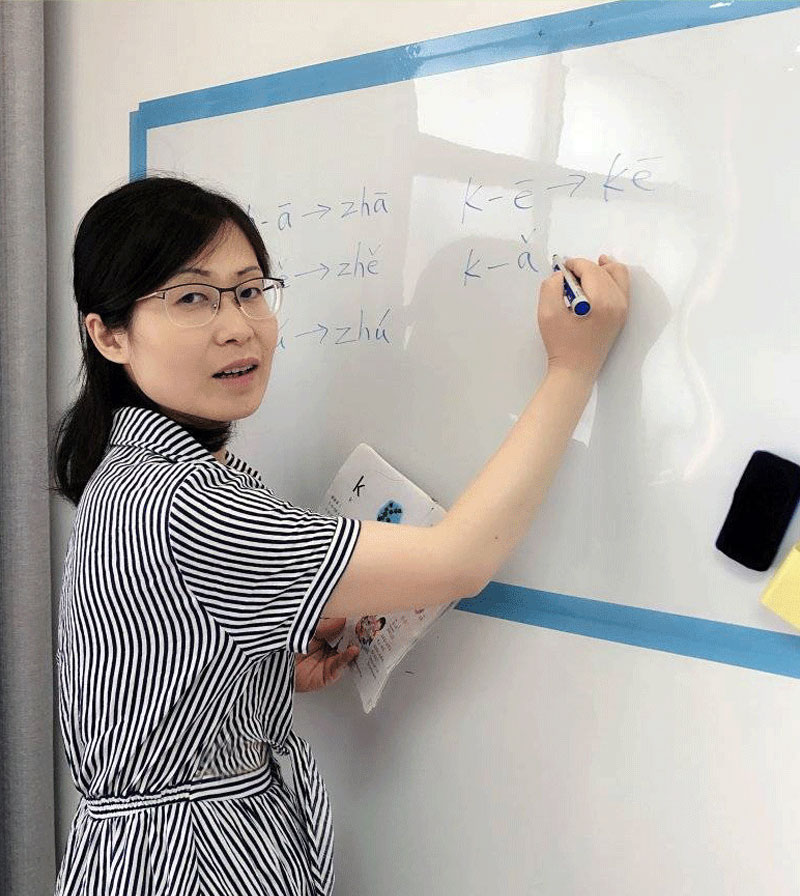 -ā → zhā
→ zhě
ú → zhú
k-ē → kē
k-ǎ
K